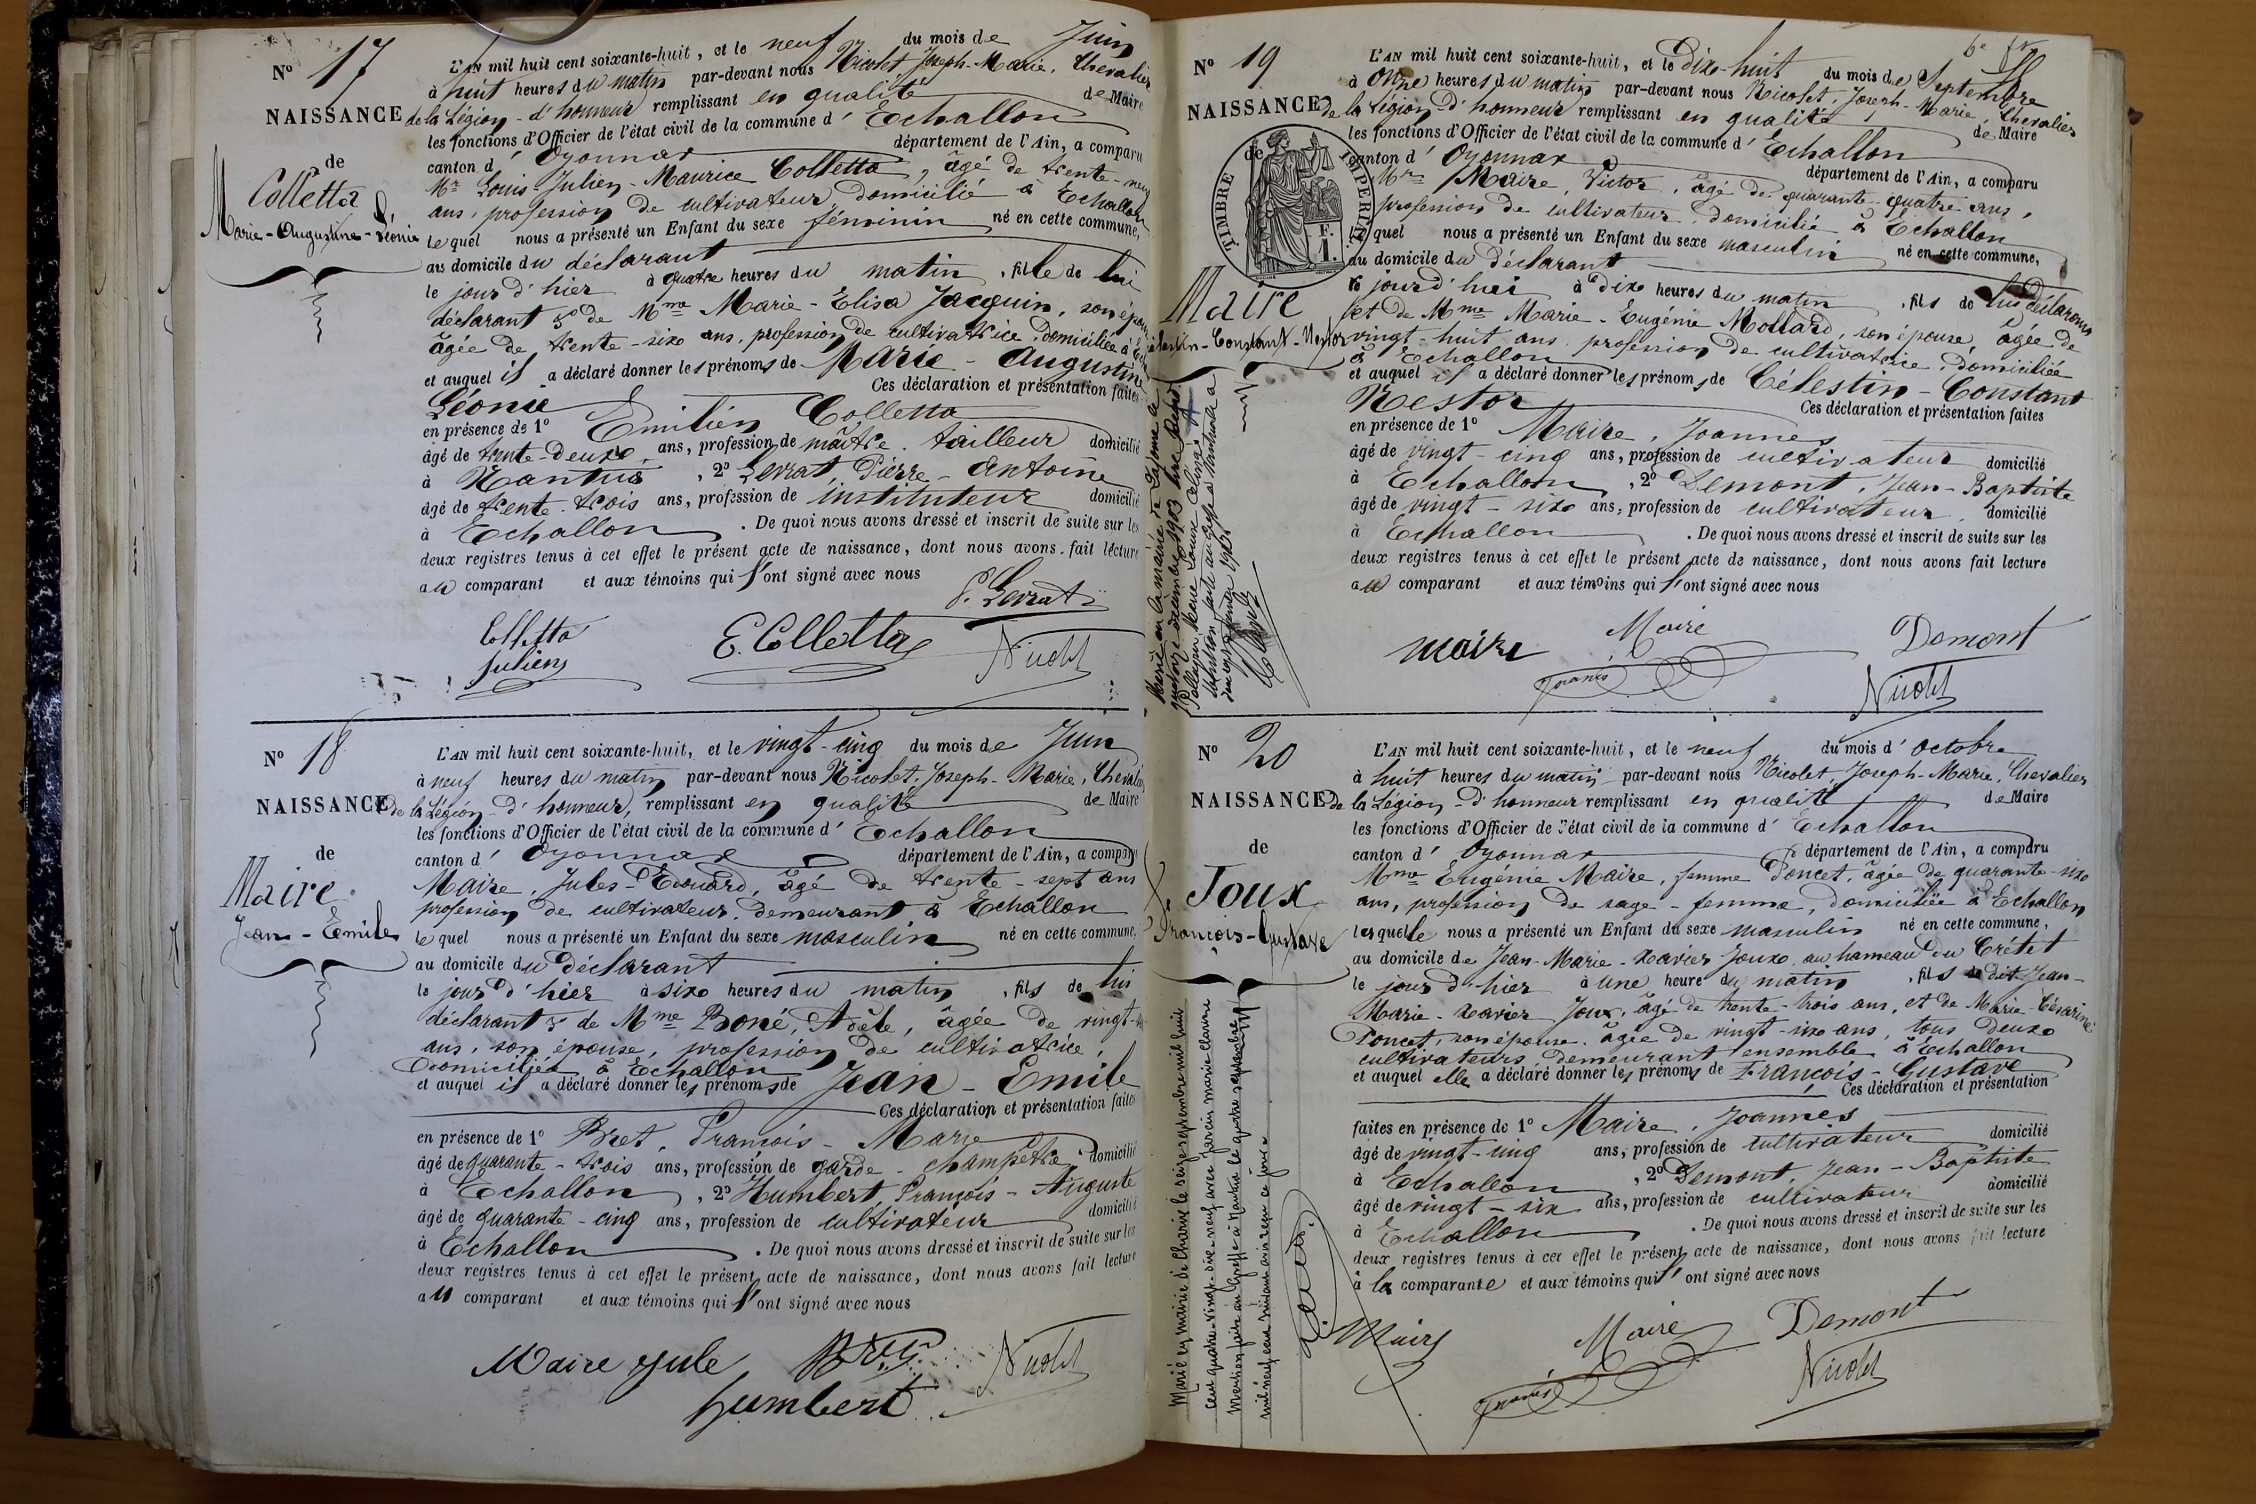 N° 17
NAISSANCE
de
Colletta
Marie-Augustine-Léonie
L'AN mil huit cent soixante-huit, et le neuf du mois de Juin
à huit heures du matin par-devant nous Nicolet Joseph-Marie, Chevalier
de la Légion-d'honneur remplissant en qualité de Maire
les fonctions d'Officier de l'état civil de la commune d'Echallon
canton d'Oyonnax département de l'Ain, a comparu
Mr Louis-Julien-Maurice Colletta, âgé de trente-neuf
ans, profession de cultivateur, domicilié à Echallon
lequel nous a présenté un Enfant du sexe féminin né en cette commune,
au domicile du déclarant
le jour d'hier à quatre heures du matin, fille de lui
déclarant & de Mme Marie-Elisa Jacquin, son épouse
âgée de trente-six ans, profession de cultivatrice, domiciliée à
et auquel il a déclaré donner les prénoms de Marie-Augustine
Léonie Ces déclaration et présentation faites
en présence de 1° Emilien Colletta
âgé de trente-deux ans, profession de maître tailleur domicilié
à Nantua, 2° Levrat, Pierre-Antoine
âgé de trente-trois ans, profession de instituteur domicilié
à Echallon. De quoi nous avons dressé et inscrit de suite sur les
deux registres tenus à cet effet le présent acte de naissance, dont nous avons fait lecture
au comparant et aux témoins qui l'ont signé avec nous
P. Levrat
Colletta
Julien
E. Colletta
Nicolet
N° 18
NAISSANCE
de
Maire
Jean-Emile
L'AN mil huit cent soixante-huit, et le vingt-cinq du mois de Juin
à neuf heures du matin par-devant nous Nicolet, Joseph-Marie, Chevalier
de la Légion-d'honneur, remplissant en qualité de Maire
les fonctions d'Officier de l'état civil de la commune d'Echallon
canton d'Oyonnax département de l'Ain, a comparu
Maire, Jules-Edouard, âgé de trente-sept ans
profession de cultivateur, demeurant à Echallon
lequel nous a présenté un Enfant du sexe masculin né en cette commune,
au domicile du déclarant
le jour d'hier à six heures du matin, fils de lui
déclarant & de Mme Boné, Adèle, âgée de vingt-
ans, son épouse, profession de cultivatrice,
Domiciliée à Echallon
et auquel il a déclaré donner les prénoms de Jean-Emile
Ces déclaration et présentation faites
en présence de 1° Bret, François-Marie
âgé de quarante-trois ans, profession de garde-champêtre domicilié
à Echallon, 2° Humbert, François-Auguste
âgé de quarante-cinq ans, profession de cultivateur domicilié
à Echallon. De quoi nous avons dressé et inscrit de suite sur les
deux registres tenus à cet effet le présent acte de naissance, dont nous avons fait lecture
au comparant et aux témoins qui l'ont signé avec nous
Maire Jule
Bret
Nicolet
humbert
N° 19
NAISSANCE
de
TIMBRE IMPERIAL
F.
1.
Maire
Célestin-Constant-Nestor
L'AN mil huit cent soixante-huit, et le Dix-huit du mois de Septembre
à Onze heures du matin par-devant nous Nicolet, Joseph-Marie, Chevalier
de la Légion d'honneur remplissant en qualité de Maire
les fonctions d'Officier de l'état civil de la commune d'Echallon
canton d'Oyonnax département de l'Ain, a comparu
Mr Maire, Victor, âgé de quarante-quatre ans,
profession de cultivateur domicilié à Echallon
lequel nous a présenté un Enfant du sexe masculin né en cette commune,
au domicile du déclarant
le jourd'hui à dix heures du matin, fils de lui déclarant
et de Mme Marie-Eugénie Mollard, son épouse, âgée de
vingt-huit ans profession de cultivatrice, domiciliée
à Echallon
et auquel il a déclaré donner les prénoms de Célestin-Constant
Nestor Ces déclaration et présentation faites
en présence de 1° Maire, Joannès
âgé de vingt-cinq ans, profession de cultivateur domicilié
à Echallon, 2° Demont, Jean-Baptiste
âgé de vingt-six ans, profession de cultivateur domicilié
à Echallon. De quoi nous avons dressé et inscrit de suite sur les
deux registres tenus à cet effet le présent acte de naissance, dont nous avons fait lecture
au comparant et aux témoins qui l'ont signé avec nous
maire
Maire
Joanès
Demont
Nicolet
Marié en la mairie de
quatorze 1903 avec
Marie Louise Célina
Mention faite au greffe à Nantua
février 1904
N° 20
NAISSANCE
de
Joux
François-Gustave
L'AN mil huit cent soixante-huit, et le neuf du mois d'octobre
à huit heures du matin par-devant nous Nicolet, Joseph-Marie, Chevalier
de la Légion-d'honneur remplissant en qualité de Maire
les fonctions d'Officier de l'état civil de la commune d'Echallon
canton d'Oyonnax département de l'Ain, a comparu
Mme Eugénie Maire, femme Poncet, âgée de quarante-six
ans, profession de sage-femme, domiciliée à Echallon
laquelle nous a présenté un Enfant du sexe masculin né en cette commune,
au domicile de Jean-Marie-Xavier Joux, au hameau du Crétet
le jour d'hier à une heure du matin, fils du dit Jean-
Marie-Xavier Joux, âgé de trente-trois ans, et de Marie-Césarine
Poncet, son épouse, âgée de vingt-six ans, tous deux
cultivateurs demeurant ensemble à Echallon
et auquel elle a déclaré donner les prénoms de François-Gustave
Ces déclaration et présentation
faites en présence de 1° Maire, Joannès
âgé de vingt-cinq ans, profession de cultivateur domicilié
à Echallon, 2° Demont, Jean-Baptiste
âgé de vingt-six ans, profession de cultivateur domicilié
à Echallon. De quoi nous avons dressé et inscrit de suite sur les
deux registres tenus à cet effet le présent acte de naissance, dont nous avons fait lecture
à la comparante et aux témoins qui l'ont signé avec nous
Maire
Maire
Joanès
Demont
Nicolet
Marié en mairie de Charix le seize septembre mil huit
cent quatre-vingt-dix-neuf avec marie
Mention faite au Greffe à Nantua le quatre septembre
mil neuf cent suivant avis reçu ce jour